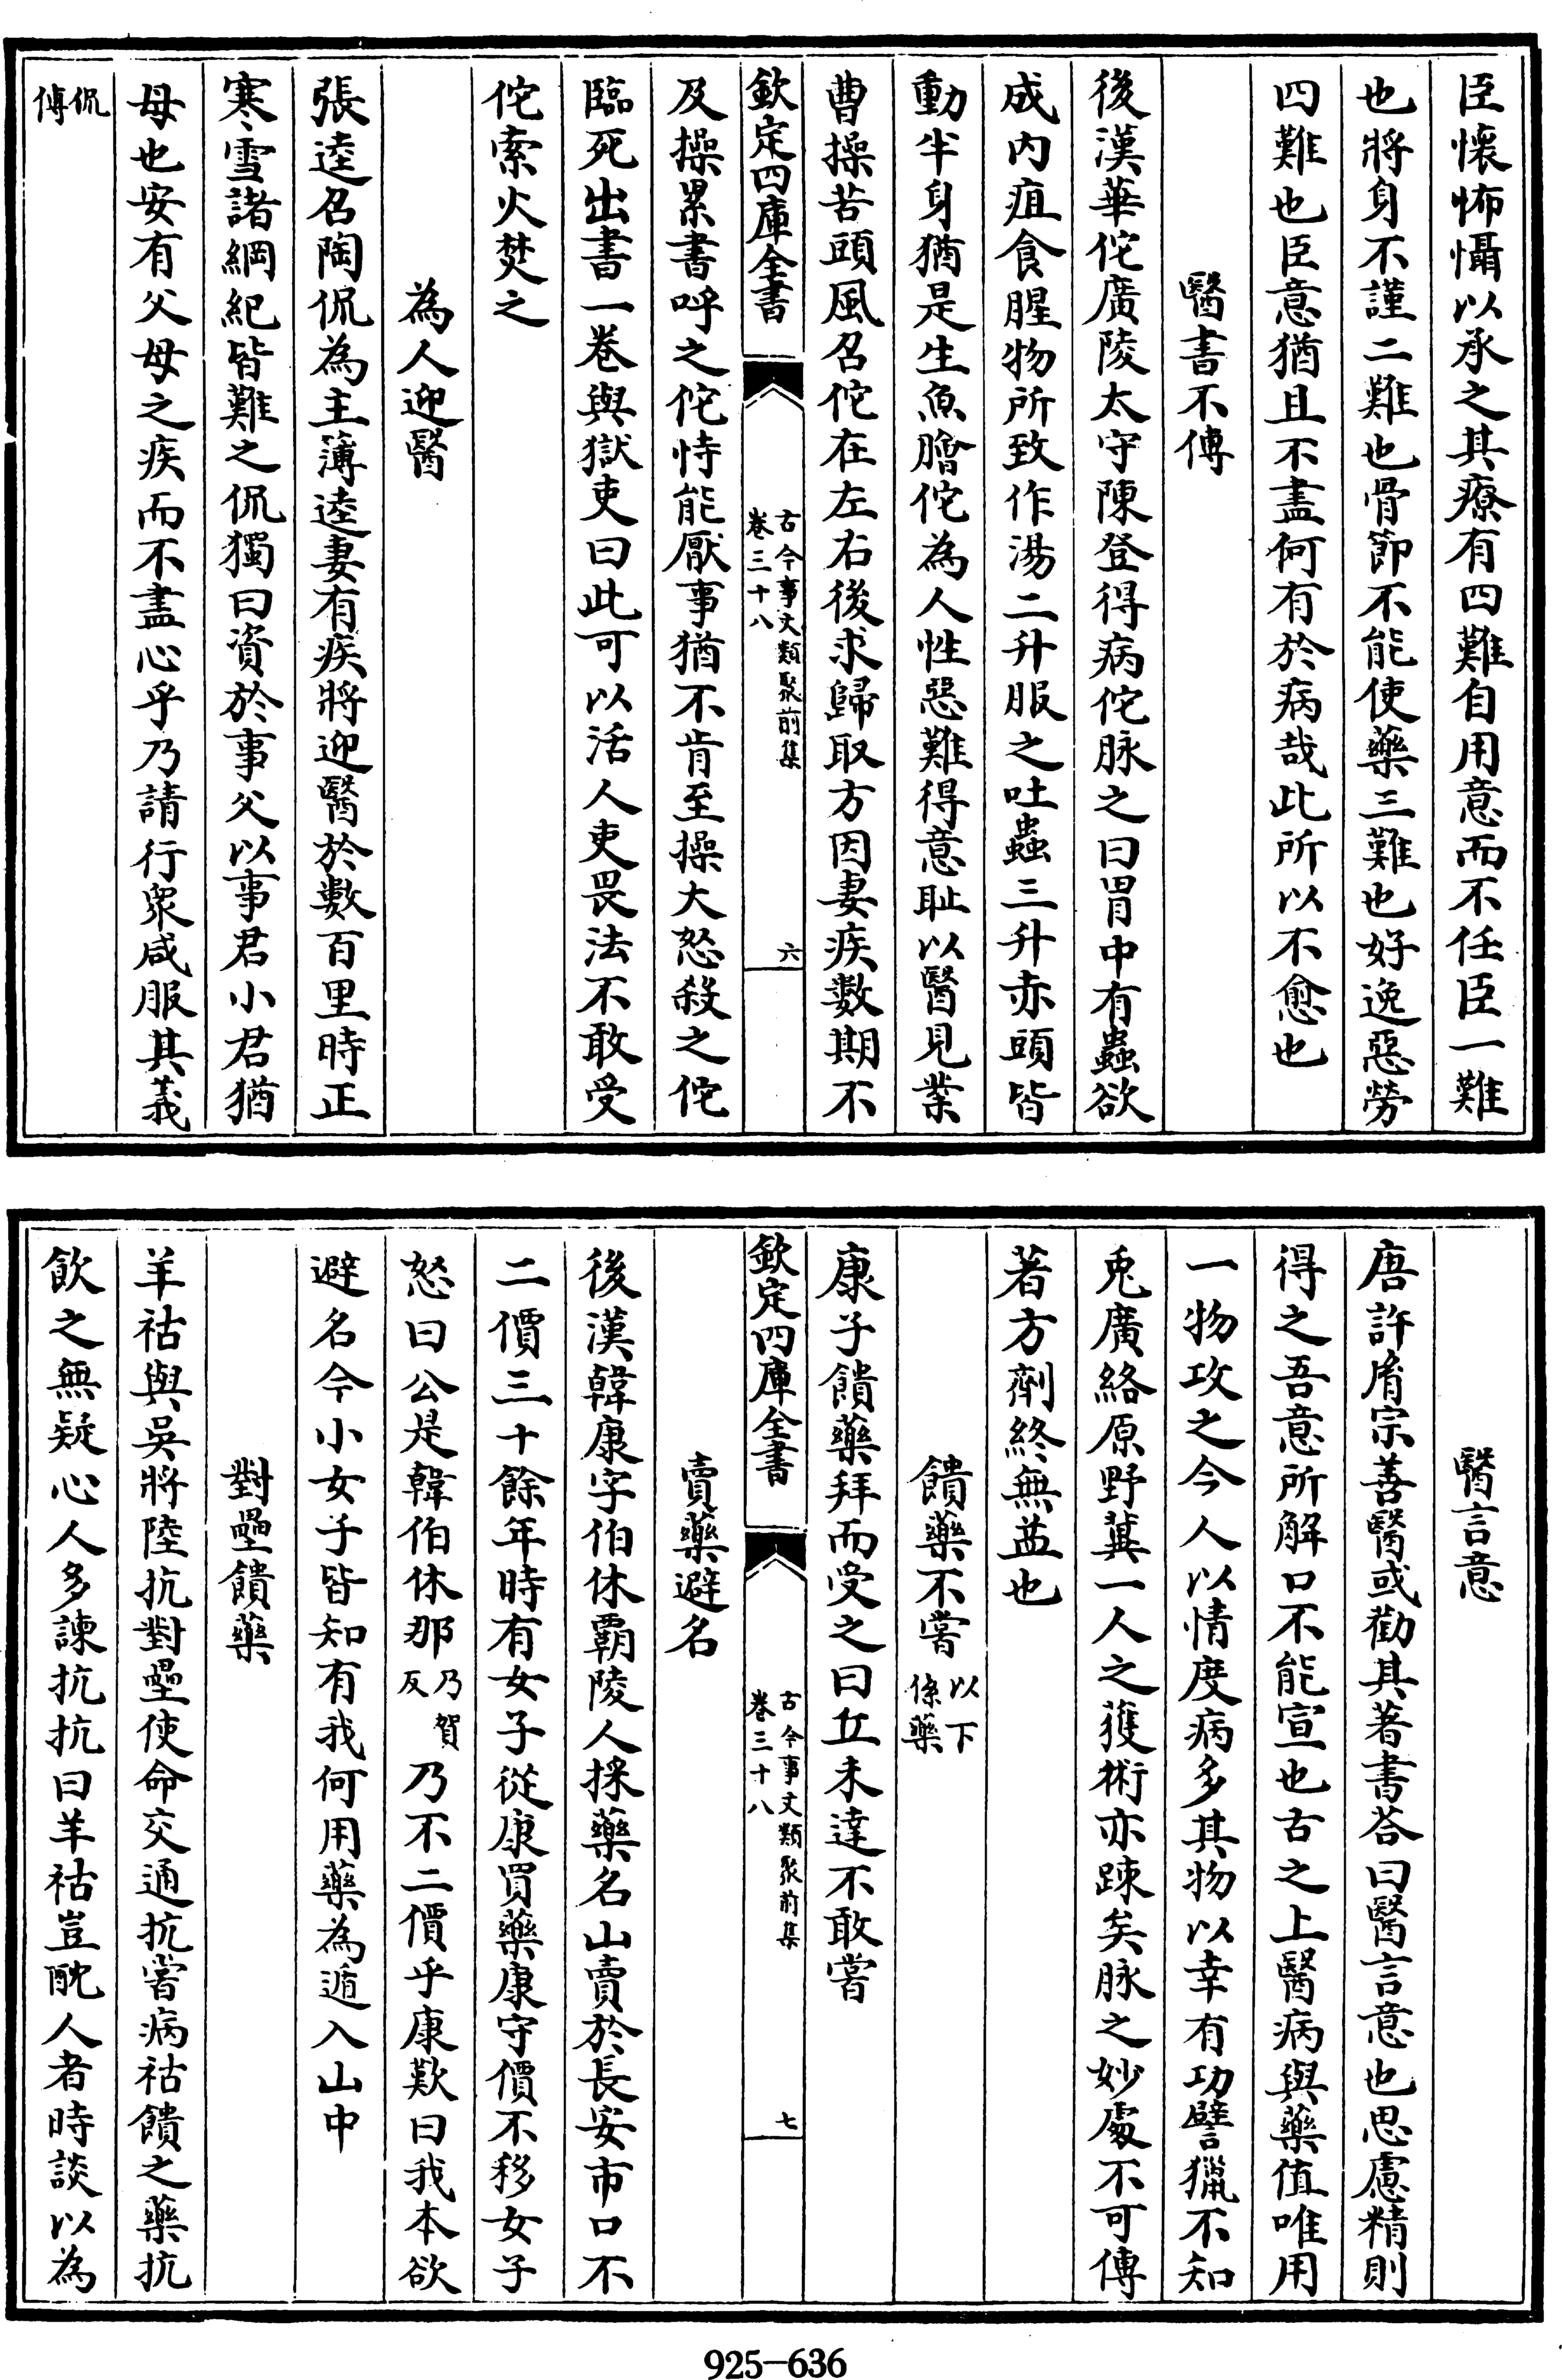 臣懷怖懾以承之其療有四難自用意而不任臣一難
也將身不謹二難也骨節不能使藥三難也好逸惡勞
四難也臣意猶且不盡何有於病哉此所以不愈也
醫書不傳
後漢華佗廣陵太守陳登得病佗脉之曰胃中有蟲欲
成内疽食腥物所致作湯二升服之吐蟲三升赤頭皆
動半身猶是生魚膾佗為人性惡難得意耻以醫見業
曹操苦頭風召佗在左右後求歸取方因妻疾數期不
欽定四庫全書
古今事文類聚前集
卷三十八
六
及操累書呼之佗恃能厭事猶不肯至操大怒殺之佗
臨死出書一卷與獄吏曰此可以活人吏畏法不敢受
佗索火焚之
為人迎醫
張逵召陶侃為主簿逵妻有疾將迎醫於數百里時正
寒雪諸綱紀皆難之侃獨曰資於事父以事君小君猶
母也安有父母之疾而不盡心乎乃請行衆咸服其義
侃
傳
醫言意
唐許胤宗善醫或勸其著書荅曰醫言意也思慮精則
得之吾意所解口不能宣也古之上醫病與藥值唯用
一物攻之今人以情度病多其物以幸有功譬獵不知
兎廣絡原野冀一人之獲術亦踈矣脉之妙處不可傳
著方劑終無益也
饋藥不嘗 以下
係藥
康子饋藥拜而受之曰丘未達不敢嘗
欽定四庫全書
古今事文類聚前集
卷三十八
七
賣藥避名
後漢韓康字伯休霸陵人採藥名山賣於長安市口不
二價三十餘年時有女子從康買藥康守價不移女子
怒曰公是韓伯休那 乃賀
反 乃不二價乎康歎曰我本欲
避名今小女子皆知有我何用藥為遁入山中
對壘饋藥
羊祜與吳將陸抗對壘使命交通抗嘗病祜饋之藥抗
飲之無疑心人多諫抗抗曰羊祜豈酖人者時談以為
925-636